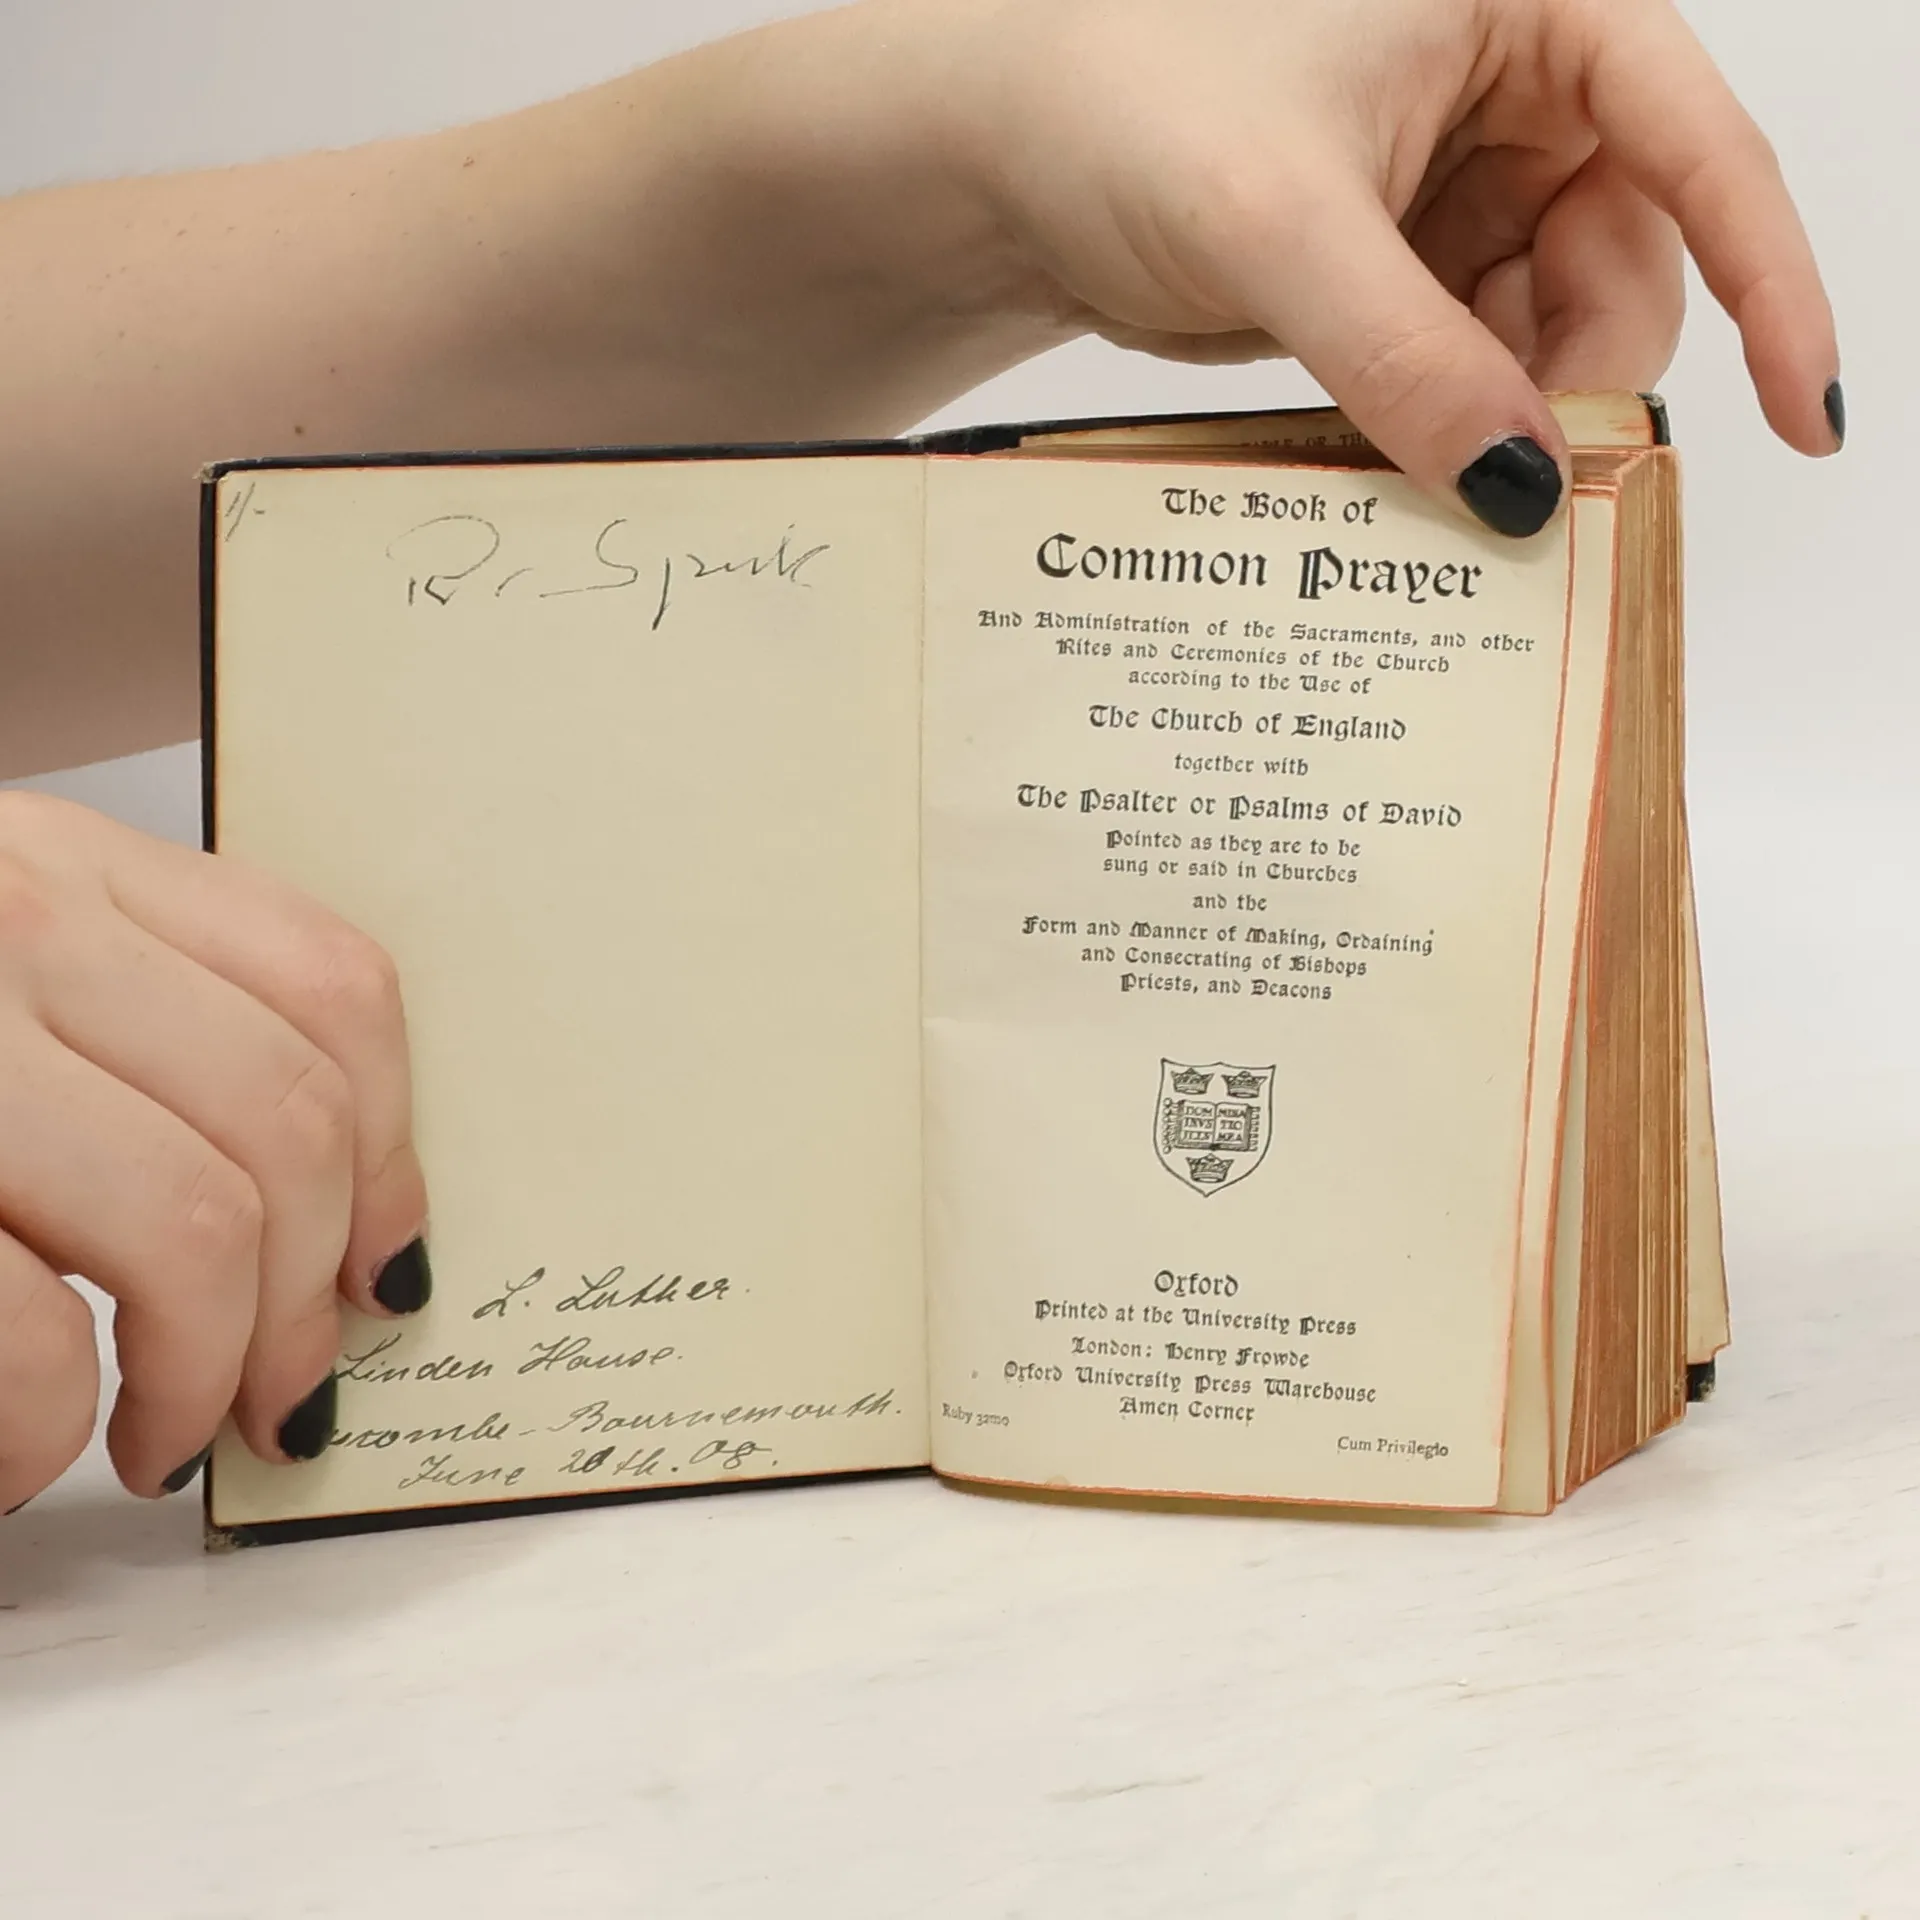 1/-
L. Luther.
Linden House.
Bournemouth.
June 20th. 08.
TABLE OF THE
The Book of
Common Prayer
And Administration of the Sacraments, and other
Rites and Ceremonies of the Church
according to the Use of
The Church of England
together with
The Psalter or Psalms of David
Pointed as they are to be
sung or said in Churches
and the
Form and Manner of Making, Ordaining
and Consecrating of Bishops
Priests, and Deacons
DOM MINA
INVS TIO
ILLV MEA
Oxford
Printed at the University Press
London: Henry Frowde
Oxford University Press Warehouse
Amen Corner
Ruby 32mo
Cum Privilegio